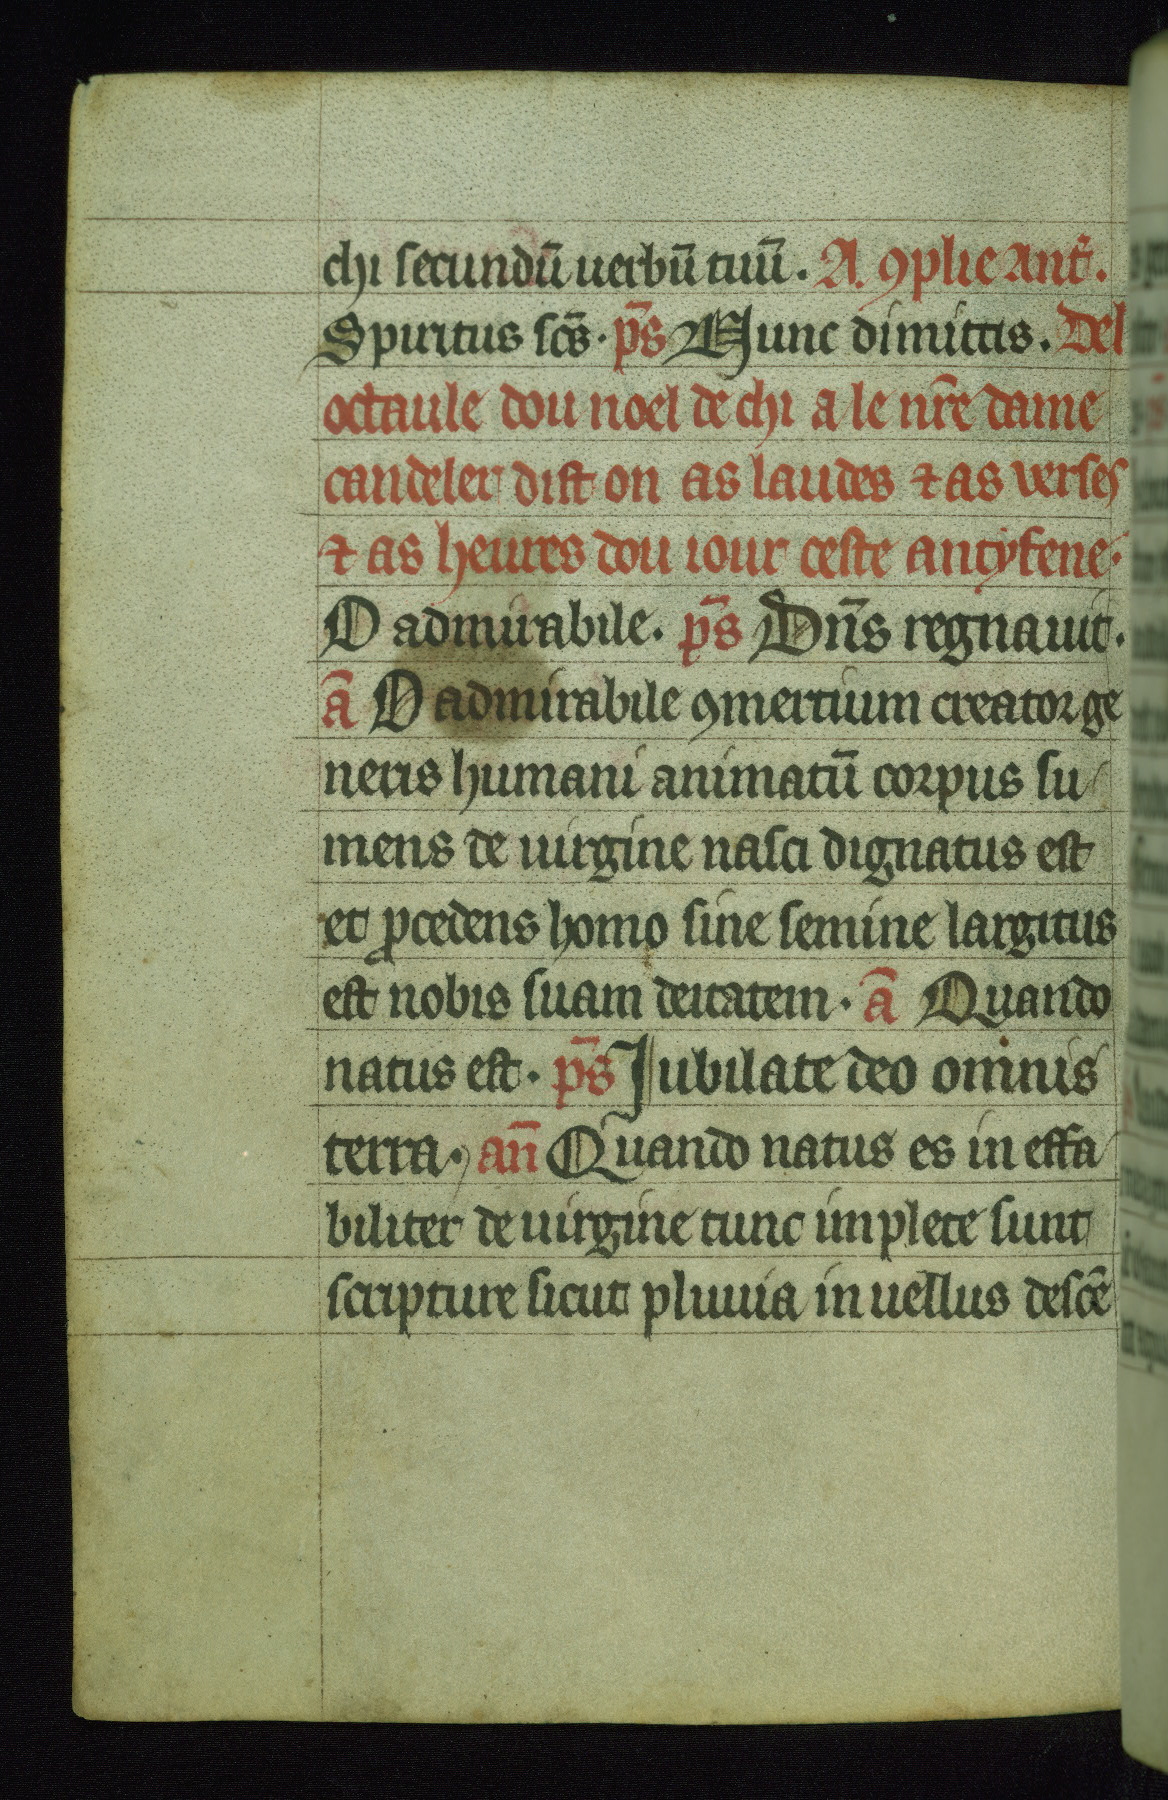 chi secundū uerbū tuū. A. ꝯplie Ant̄.
Spiritus sc̄s. ps̄ Nunc dimittis. Del
octaule dou noel de chi a le nr̄e dame
candeler dist on as laudes ⁊ as verses
⁊ as heures dou iour ceste antyfene.
O admirabile. ps̄ Dn̄s regnauit.
ā O admirabile ꝯmertium creator ge
neris humani animatū corpus su
mens de uirgine nasci dignatus est
et ꝓcedens homo sine semine largitus
est nobis suam deitatem. ā Quando
natus est. ps̄ Jubilate deo omnis
terra. an̄ Quando natus es in effa
biliter de uirgine tunc implete sunt
scripture sicut pluuia in uellus descē